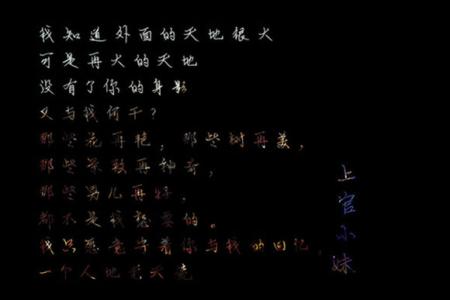 我知道外面的天地很大
可是再大的天地
没有了你的身影
又与我何干?
那些花再艳，那些树再美，
那些景致再神奇，
那些男儿再好，
都不是我想要的。
我只愿意守着你与我的回记，
一个人地老天荒
上官小妹